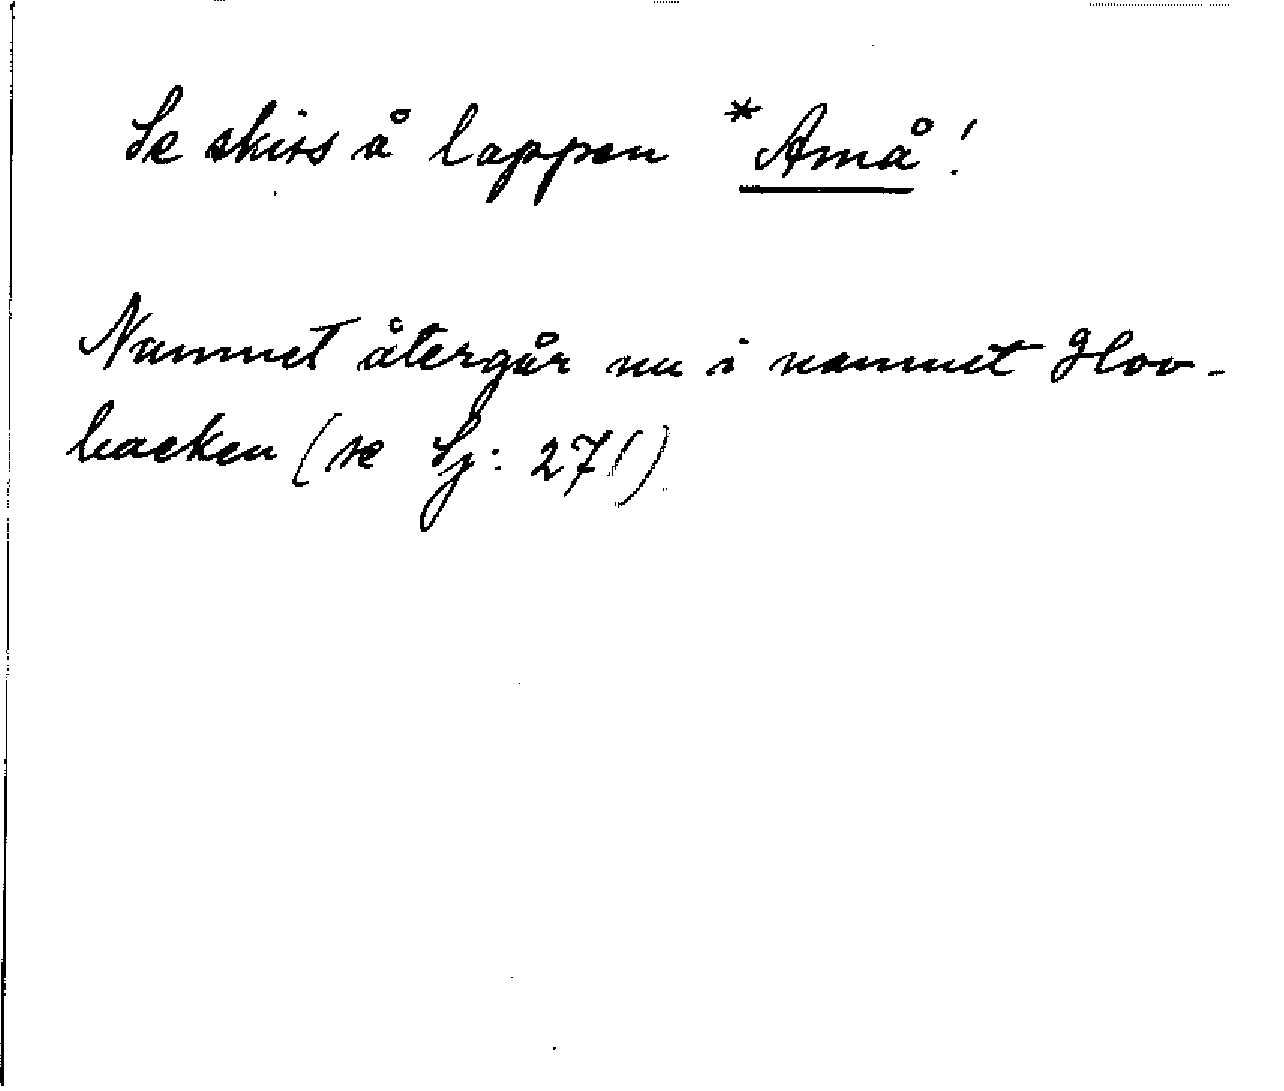 Se skiss å lappen *Amå!
Namnet återgår nu i namnet Hov-
backen (se Sj: 27!)